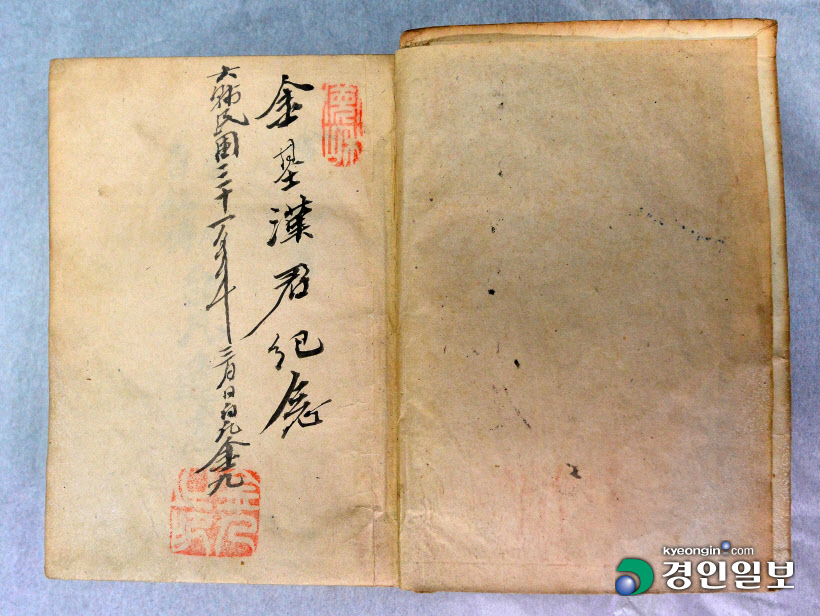 金基漢君紀念
大韓民國三十一年 三月日白凡金九
金九之印
kyeongin.com
경인일보